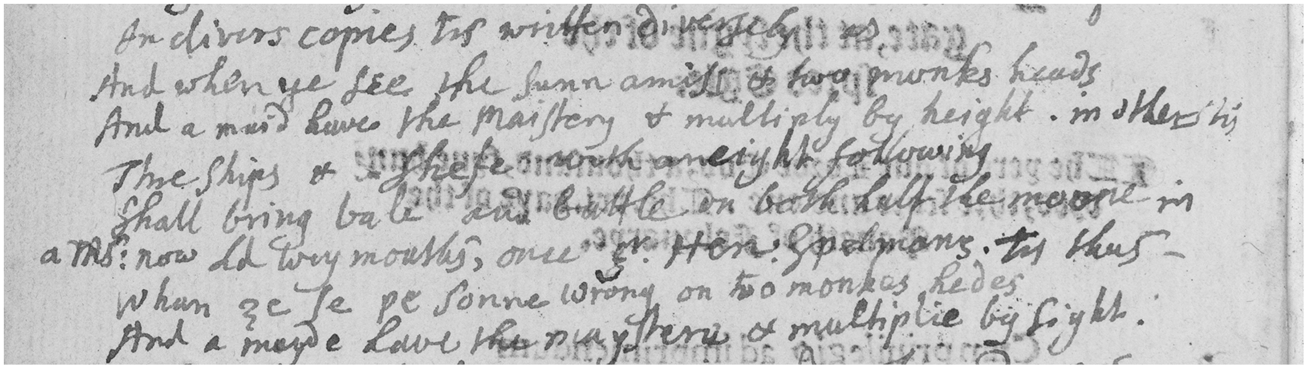 In divers copies tis written diversely as,
And when ye see the sunn amiss & two monks heads
And a maid have the Maistery & multiply by height. in other tis
Thre ships & a shefe with an eight following
Shall bring bale and battle on both half the moone in
a MS: now Ld Weymouths, once Sr. Hen: Spelmans. Tis thus –
Whan ȝe se þe sonne wrong on two monkes hedes
And a mayde have the maystery & multiplie by sight.